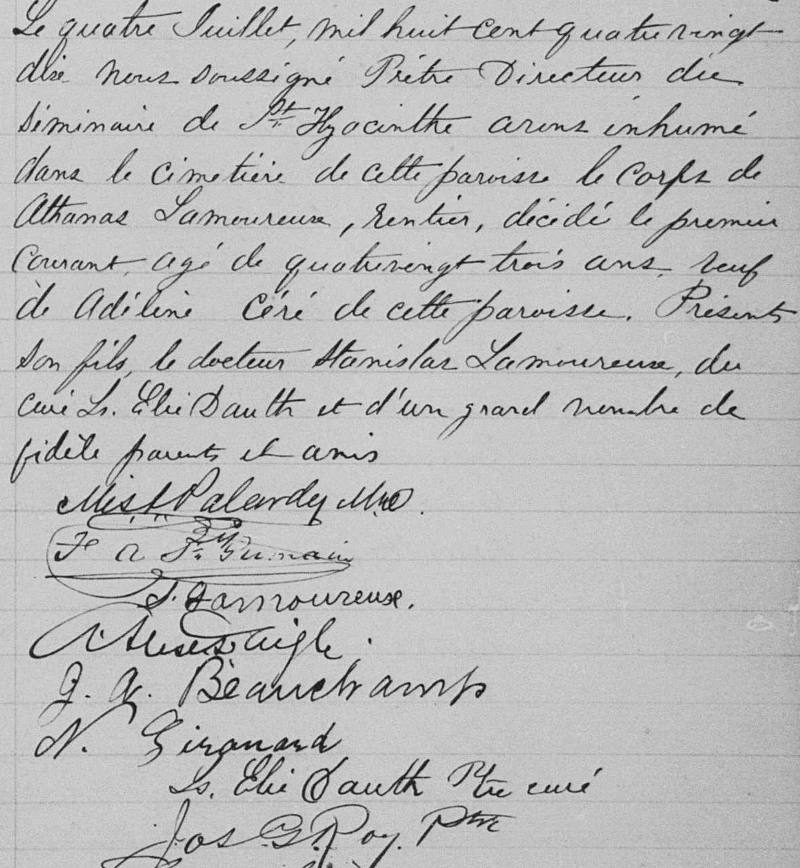 Le quatre Juillet, mil huit cent quatrevingt
dix nous soussigné Prêtre Directeur du
séminaire de St. Hyacinthe avons inhumé
dans le cimetière de cette paroisse le corps de
Athanas Lamoureux, rentier, décédé le premier
Courant, agé de quatrevingt trois ans, veuf
de Adéline Céré de cette paroisse. Présents
son fils, le docteur Stanislas Lamoureux, du
curé Ls. Elie Dauth et d'un grand nombre de
fidèle parents et amis
Palardy
F A St. Germain
S. Lamoureux.
Daigle.
J. A. Beauchamp
N. Girouard
Ls. Elie Dauth Ptre curé
Jos G. Roy. Ptre